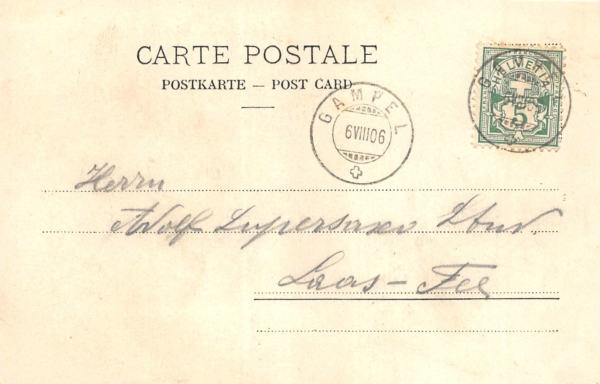 CARTE POSTALE
POSTKARTE — POST CARD
GAMPEL
6 VIII 06
HELVETIA
5
Herrn
Adolf Supersaxo
Saas-Fee